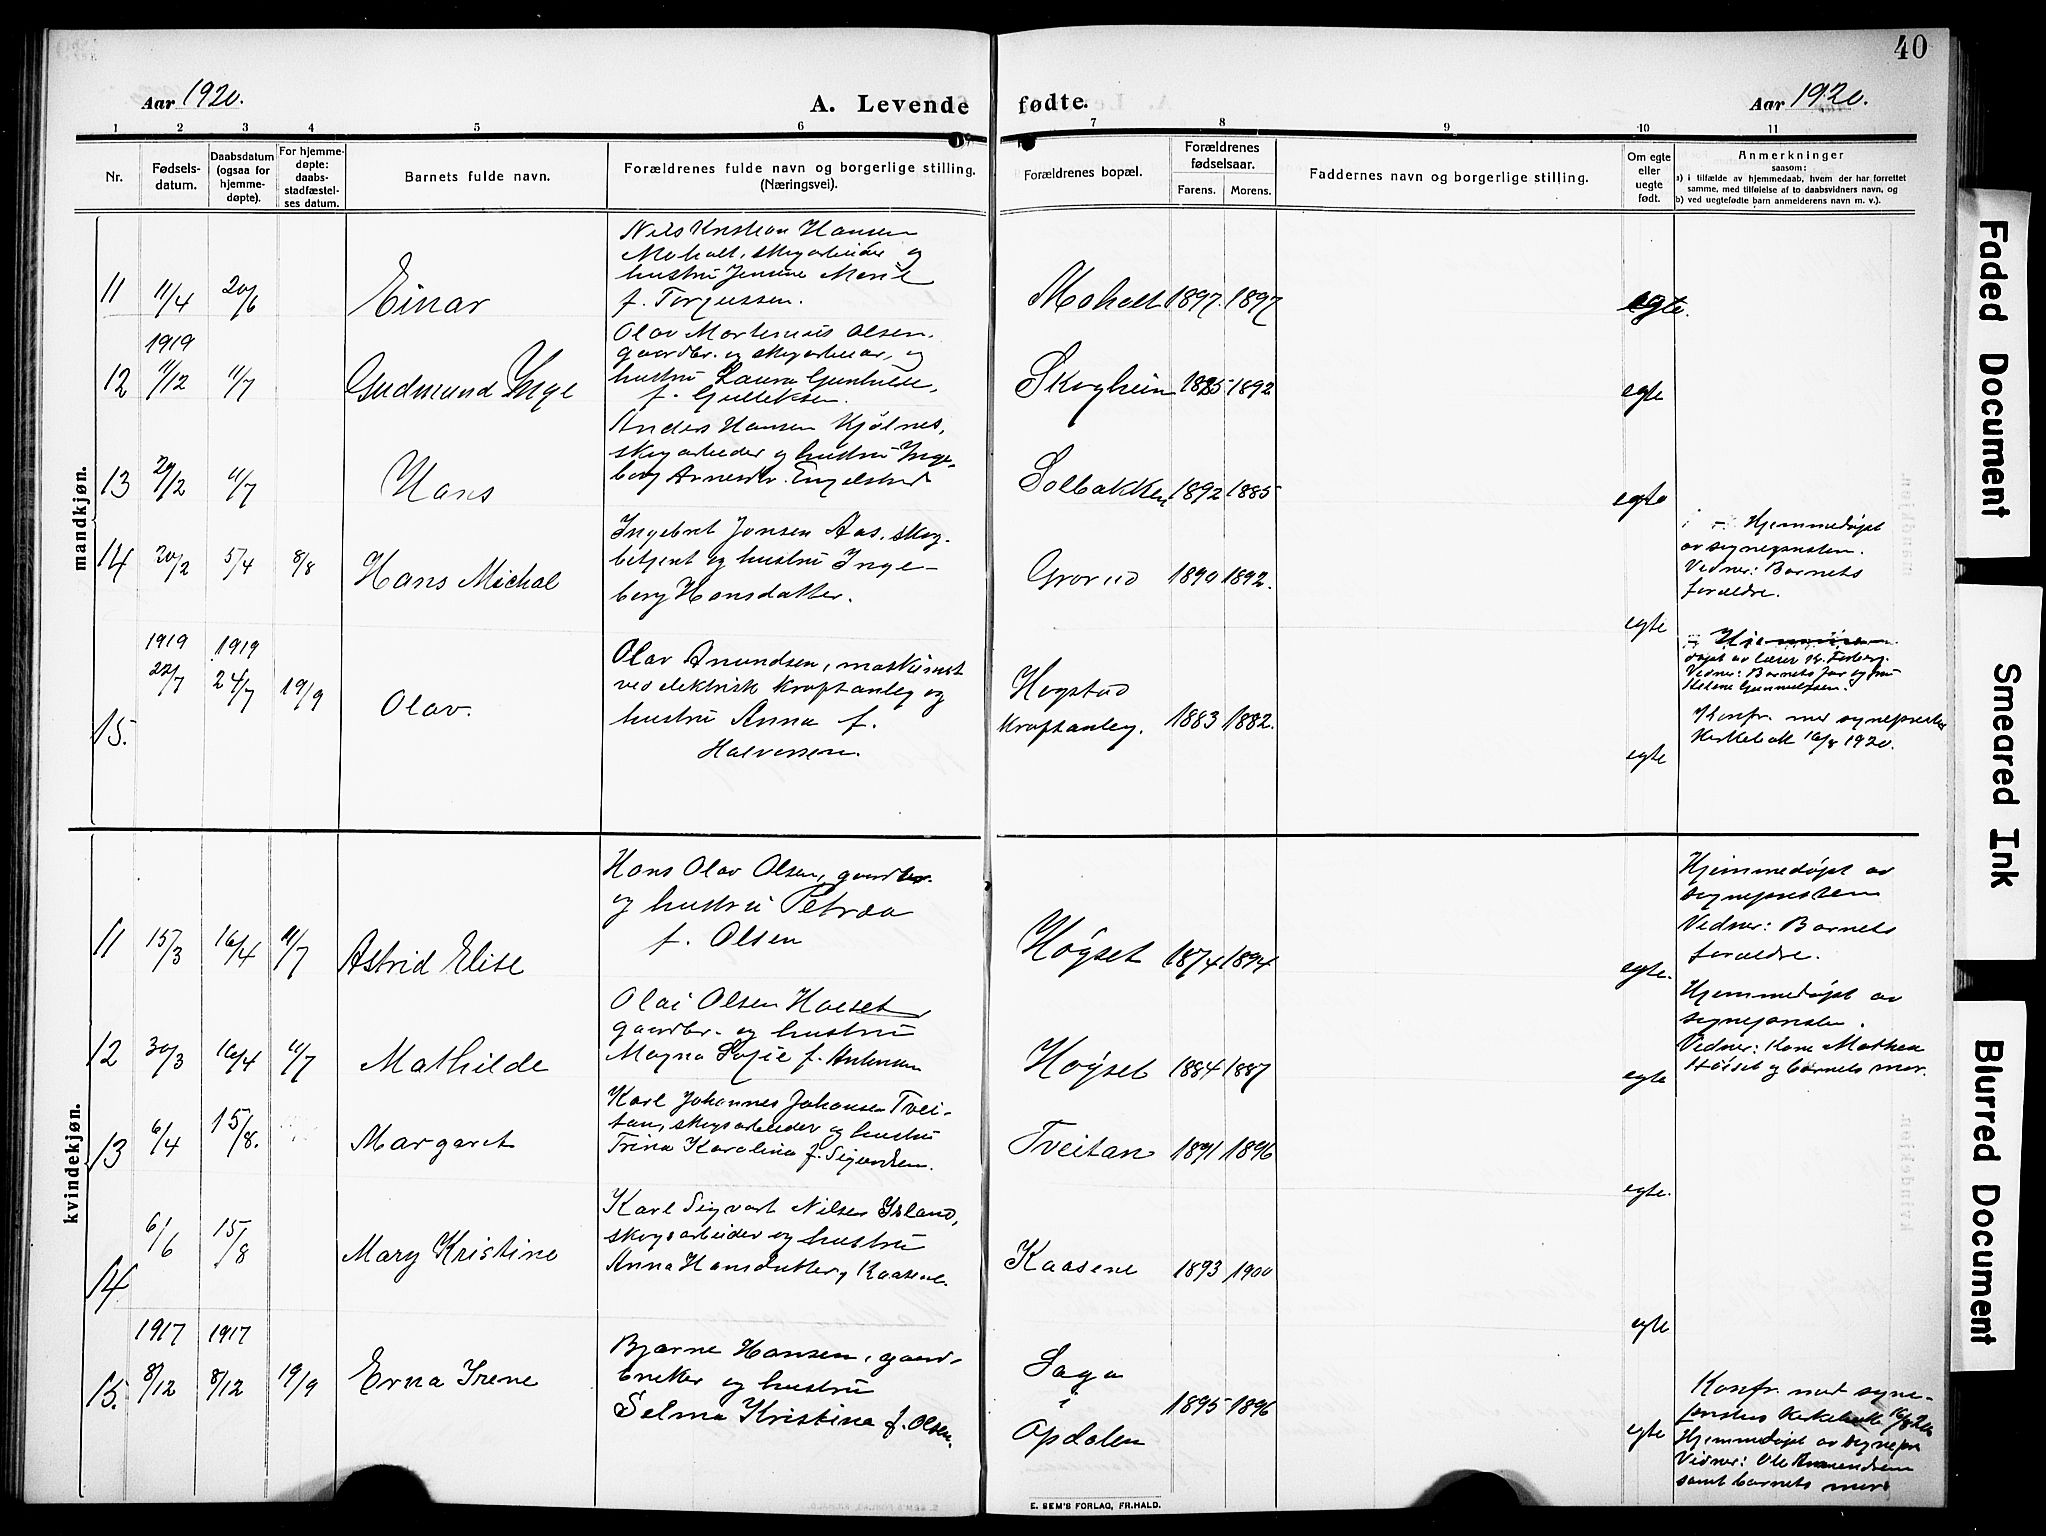 40
Aar 1920.
A. Levende
fødte.
Aar 1920.
1 2 3 4 5 6 7 8 9 10 11
Nr.
Fødsels-
datum.
Daabsdatum
(ogsaa for
hjemme-
døpte).
For hjemme-
døpte:
daabs-
stadfæstel-
ses datum.
Barnets fulde navn.
Forældrenes fulde navn og borgerlige stilling.
(Næringsvei).
Forældrenes bopæl.
Forældrenes
fødselsaar.
Farens. Morens.
Faddernes navn og borgerlige stilling.
Om egte
eller
uegte
født.
Anmerkninger
saasom:
a) i tilfælde av hjemmedaab, hvem der har forrettet
samme, med tilføielse af to daabsvidners navn, og
b) ved uegtefødte barn anmelderens navn m. v.).
mandkjøn.
11 11/4 20/6 Einar
Nils Kristian Hansen
Moholt, skogarbeider og
hustru Jensine Marie
f. Torjussen.
Moholt 1897. 1897
egte.
12 1919 11/12 11/7 Gudmund Inge
Olav Martinius Olsen.
gaardbr. og skogarbeider, og
hustru Laura Gunhilde,
f. Gulleksen.
Skogheim 1885 1892
egte
13 29/2 11/7 Hans
Anders Hansen Kjølnes,
skogarbeider og hustru Inge-
borg Arnesdtr. Engelstad
Solbakken 1892 1885
egte
14 20/2 5/4 8/8 Hans Michal
Ingebret Jonsen Aas, skog-
betjent og hustru Inge-
borg Hansdatter.
Grorud 1890 1892.
egte
Hjemmedøpt
av sognepresten.
Vedner: Barnets
forældre.
15. 1919 22/7 1919 24/7 19/9 Olav.
Olav Amundsen, maskinist
ved elektrisk kraftanleg og
hustru Anna f.
Halvorsen.
Hogstad
kraftanleg. 1883 1882.
egte
døpt av lærer K.
Vedner: Barnets far og fru
Helene Gunnulfsen.
Konfr. med sogneprester
Kirkebok 16/8 1920.
kvindekjøn.
11 15/3 16/4 11/7 Astrid Elise
Hans Olav Olsen, gaardbr.
og hustru Petrea
f. Olsen
Høgset 1874 1894
egte.
Hjemmedøpt av
sognepresten
Vedner: Barnets
forældre.
12 30/3 16/4 11/7 Mathilde
Olai Olsen Høgset
gaardbr. og hustru
Magna Sofie f. Antonsen
Høgset 1884 1887
egte
Hjemmedøpt av
sognepresten.
Vedner: Kone Mathea
Høiset og barnets mor.
13 6/4 15/8. Margaret
Karl Johannes Johansen Tvei-
tan, skogsarbeider og hustru
Trina Karolina f. Sigurdsen.
Tveitan 1891 1896
egte.
14 6/6 15/8 Mary Kristine
Karl Sigvart Nilsen Island,
skogsarbeider og hustru
Anna Hansdatter, Kaasene.
Kaasene 1893 1900
egte
15. 1917 8/12 1917 8/12 19/9 Erna Irene
Bjarne Hansen, gaard-
bruker og hustru
Selma Kristina f. Olsen.
Saga
i
Opdalen 1895 1896
egte
Konfr. med sogne-
prestens Kirkebok 16/8 20
Hjemmedøpt av sognepr
Vedner: Ole Amundsen
samt barnets mor
E. SEM'S FORLAG, FR.HALD.
Faded Document
Smeared Ink
Blurred Document